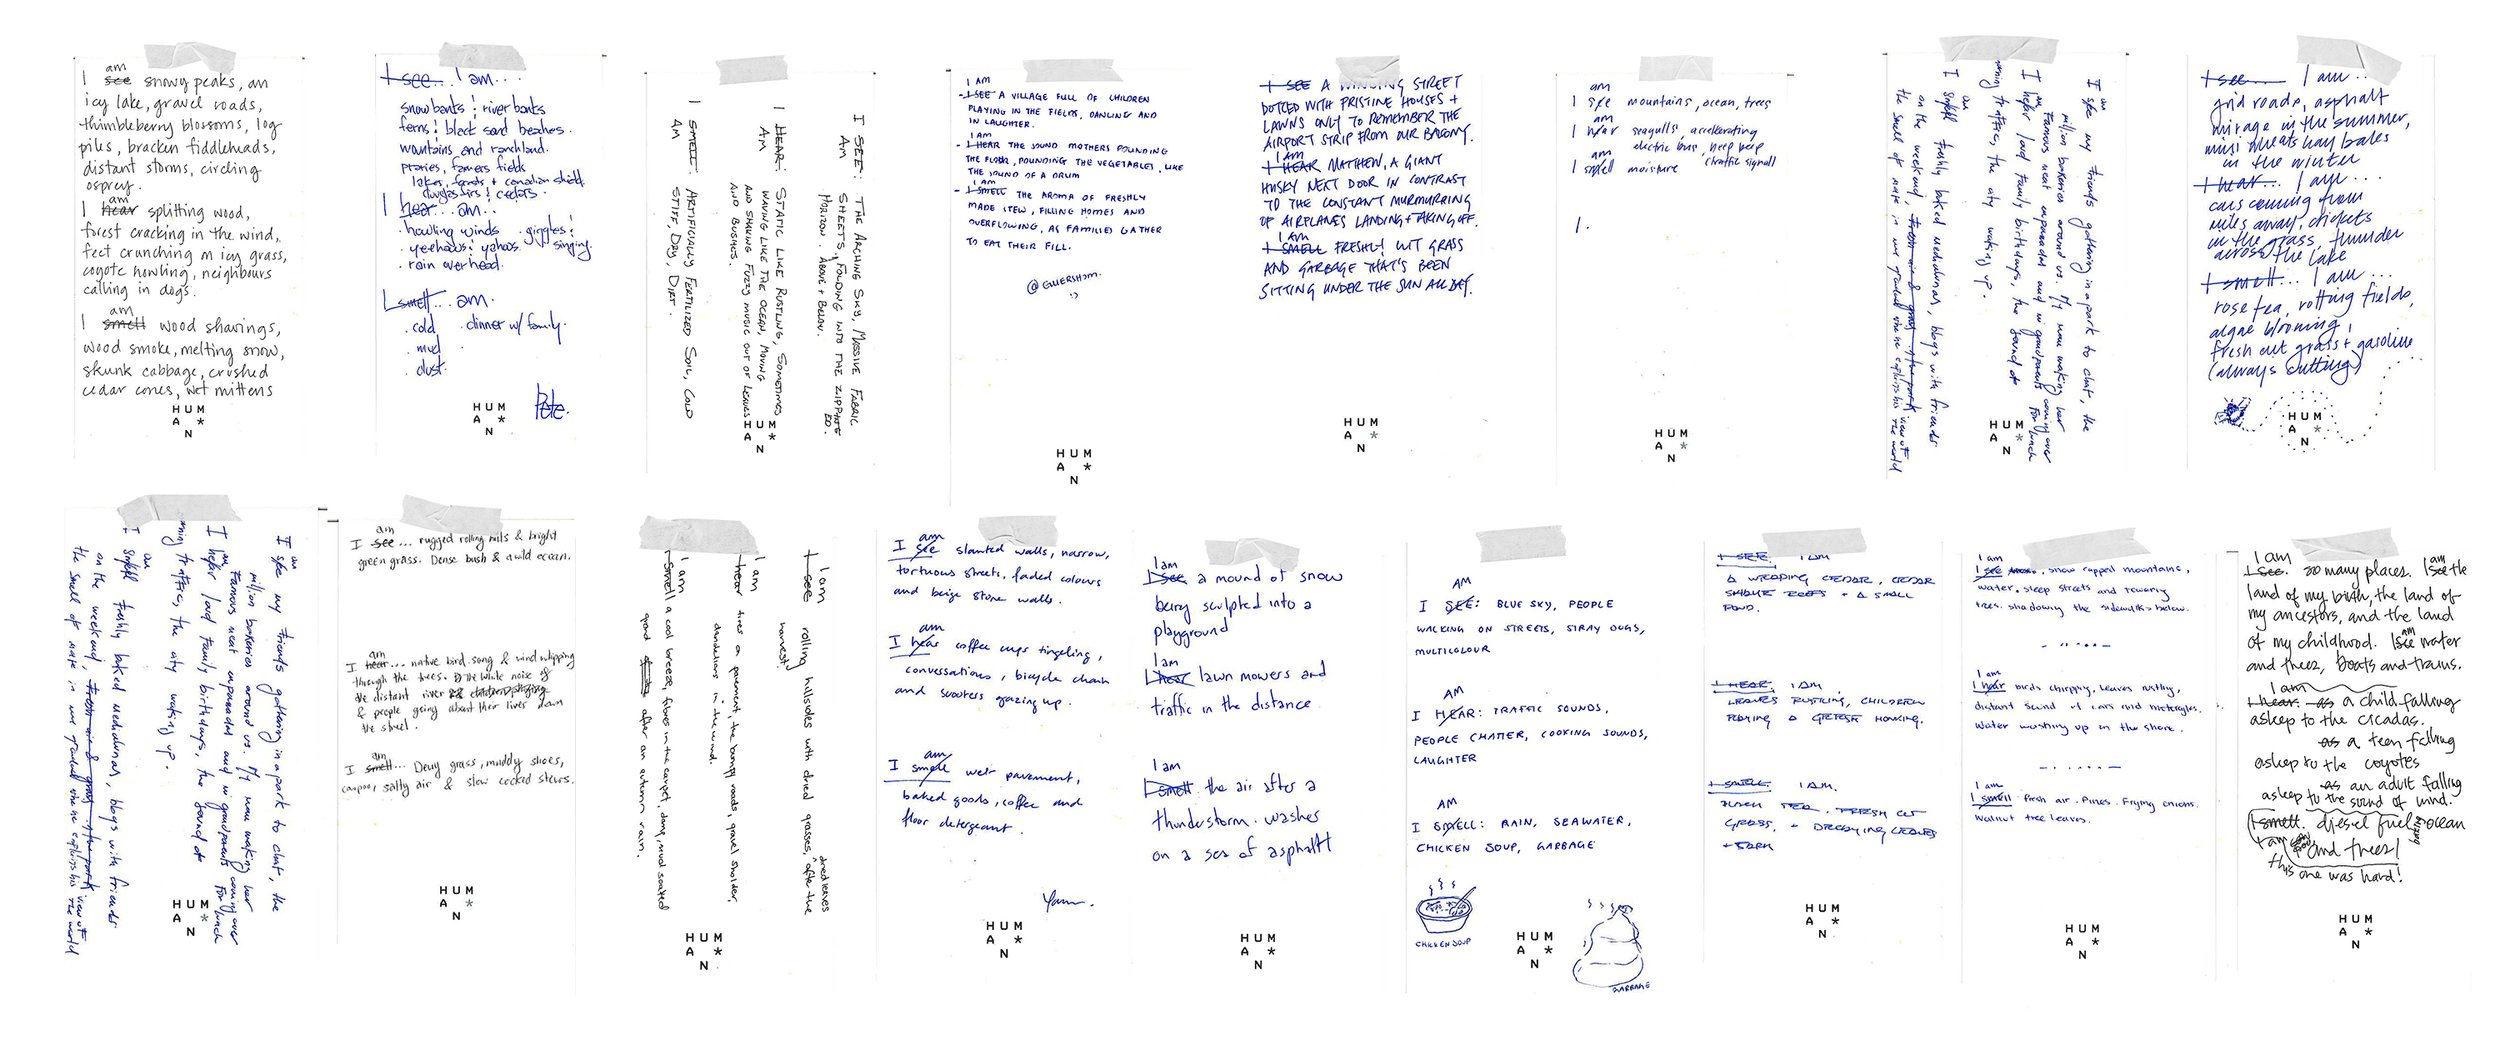 am
I see snowy peaks, an
icy lake, gravel roads,
thimbleberry blossoms, log
piles, bracken fiddleheads,
distant storms, circling
osprey.
am
I hear splitting wood,
forest cracking in the wind,
feet crunching on icy grass,
coyote howling, neighbours
calling in dogs.
am
I smell wood shavings,
wood smoke, melting snow,
skunk cabbage, crushed
cedar cones, wet mittens
HUM
A *
N
I see... I am...
snowbanks & river banks
ferns & black sand beaches.
mountains and ranchland.
praries, farmers fields
lakes, forests + canadian shield.
douglas firs & cedars.
I hear... am..
. howling winds . giggles &
. yeehaws & yahoos. singing.
. rain overhead.
I smell... am.
. cold . dinner w/ family.
. mud
. dust.
Pete.
HUM
A *
N
I SEE: THE ARCHING SKY, MASSIVE FABRIC
AM SHEETS, FOLDING INTO THE ZIPPED
HORIZON. ABOVE + BELOW.
I HEAR: STATIC LIKE RUSTLING, SOMETIMES
AM WAVING LIKE THE OCEAN, MOVING
AND SHAKING FUZZY MUSIC OUT OF LEAVES
AND BUSHES.
I SMELL: ARTIFICIALLY FERTILIZED SOIL, COLD
AM STIFF, DRY, DIRT.
HUM
A *
N
I AM
- I SEE A VILLAGE FULL OF CHILDREN
PLAYING IN THE FIELDS, DANCING AND
IN LAUGHTER.
I AM
- I HEAR THE SOUND MOTHERS POUNDING
THE FLOUR, POUNDING THE VEGETABLES, LIKE
THE SOUND OF A DRUM
I AM
- I SMELL THE AROMA OF FRESHLY
MADE STEW, FILLING HOMES AND
OVERFLOWING, AS FAMILIES GATHER
TO EAT THEIR FILL.
:)
HUM
A *
N
I SEE A WINDING STREET
DOTTED WITH PRISTINE HOUSES +
LAWNS ONLY TO REMEMBER THE
AIRPORT STRIP FROM OUR BALCONY.
I AM
I HEAR MATHEW, A GIANT
HUSKY NEXT DOOR IN CONTRAST
TO THE CONSTANT MURMURRING
OF AIRPLANES LANDING + TAKING OFF.
I AM
I SMELL FRESHLY CUT GRASS
AND GARBAGE THAT'S BEEN
SITTING UNDER THE SUN ALL DAY.
HUM
A *
N
am
I see mountains, ocean, trees
am
I hear seagulls, accelerating
electric bus, beep beep
(traffic signal)
am
I smell moisture
I.
HUM
A *
N
am
I see my friends gathering in a park to chat, the
million bakeries around us. My mom making her
famous meat empanadas and my grandparents coming over
for lunch
am
I hear loud family birthdays, the sound of
traffic, the city waking up.
am
I smell freshly baked medialunas, vlogs with friends
on the weekend,
the smell of mate
HUM
A *
N
I see... I am...
grid roads, asphalt
mirage in the summer,
mini wheats hay bales
in the winter
I hear... I am...
cars coming from
miles away, crickets
in the grass, thunder
across the lake
I smell... I am...
rose tea, rotting fields,
algae blooming,
fresh cut grass + gasoline
(always cutting)
HUM
A *
N
am
I see my friends gathering in a park to chat, the
million bakeries around us. My mom making her
famous meat empanadas and my grandparents coming over
for lunch
am
I hear loud family birthdays, the sound of
traffic, the city waking up.
am
I smell freshly baked medialunas, vlogs with friends
on the weekend,
the smell of mate
HUM
A *
N
am
I see... rugged rolling hills & bright
green grass. Dense bush & a wild ocean.
am
I hear... native bird song & wind whipping
through the trees. The white noise of
the distant river
& people going about their lives down
the street.
am
I smell... Dewy grass, muddy shoes,
salty air & slow cooked stews.
HUM
A *
N
I am
I see rolling hillsides with dried grasses, dried leaves after the
harvest
I am
I hear tires on pavement, the bumpy roads, gravel sholder,
dandelions in the wind.
I am
I smell a cool breeze, fibres in the carpet, damp, mud soaked
ground after an autumn rain.
HUM
A *
N
am
I see slanted walls, narrow,
tortuous streets, faded colours
and beige stone walls.
am
I hear coffee cups tingeling,
conversations, bicycle chain
and scooters grazing up.
am
I smell wet pavement,
baked goods, coffee and
floor detergeant.
HUM
A *
N
I am
I see a mound of snow
being sculpted into a
playground
I am
I hear lawn mowers and
traffic in the distance
I am
I smell the air after a
thunderstorm. washes
on a sea of asphalt
HUM
A *
N
AM
I SEE: BLUE SKY, PEOPLE
WALKING ON STREETS, STRAY DOGS,
MULTICOLOUR
AM
I HEAR: TRAFFIC SOUNDS,
PEOPLE CHATTER, COOKING SOUNDS,
LAUGHTER
AM
I SMELL: RAIN, SEAWATER,
CHICKEN SOUP, GARBAGE
CHICKEN SOUP
GARBAGE
HUM
A *
N
I SEE. I AM
A WEEPING CEDAR, CEDAR
SHAKE ROOFS + A SMALL
POND.
I HEAR. I AM.
LEAVES RUSTLING, CHILDREN
PLAYING + GEESE HONKING.
I SMELL. I AM.
BLACK TEA, FRESH CUT
GRASS, + DECAYING LEAVES
HUM
A *
N
I am
I see snow capped mountains,
water. steep streets and towering
trees. shadowing the sidewalks below.
I am
I hear birds chirping, leaves rustling,
distant sound of cars and motorcycles.
water washing up on the shore.
I am
I smell fresh air. Pines. Frying onions.
Walnut tree leaves.
HUM
A *
N
I am
I see. so many places. I am see the
land of my birth, the land of
my ancestors, and the land
of my childhood. I am see water
and trees, boats and trains.
I am
I hear. as a child falling
asleep to the cicadas.
as a teen falling
asleep to the coyotes
as an adult falling
asleep to the sound of wind.
I smell. diesel fuel ocean
I am and trees!
this one was hard!
HUM
A *
N